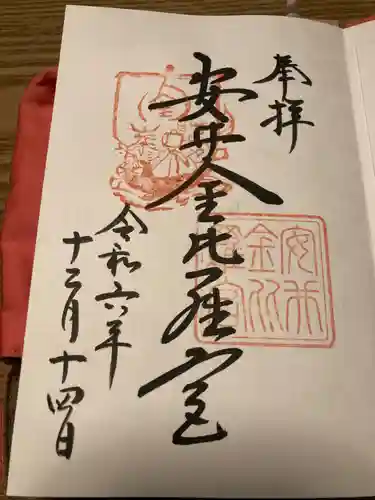 奉拝
安井金比羅宮
安井
金比
羅宮
令和六年
十二月十四日